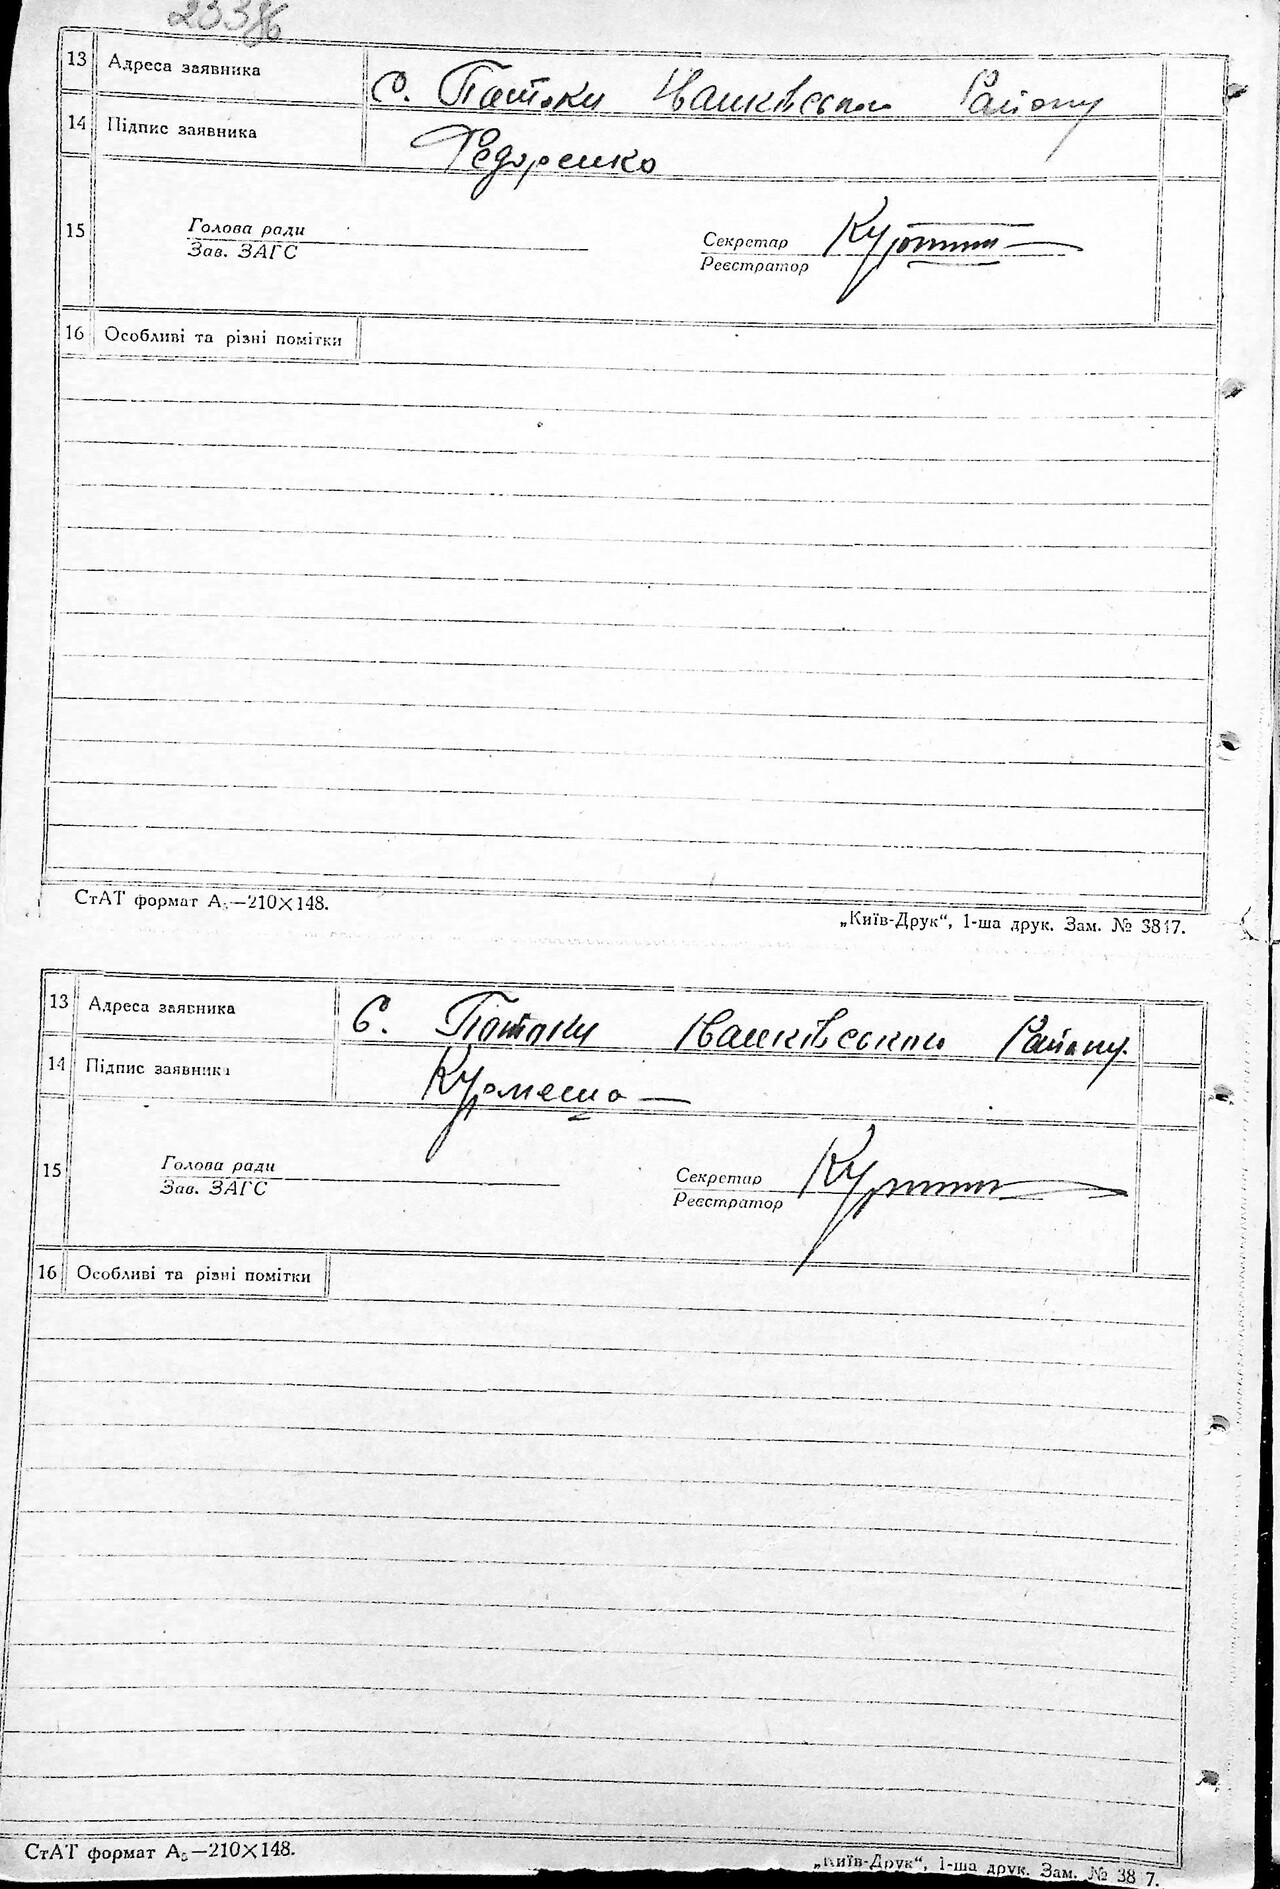 23386
13 Адреса заявника с. Потоки Іванківського Району
14 Підпис заявника Федоренко
15 Голова ради
Зав. ЗАГС
Секретар
Реєстратор
16 Особливі та різні помітки
СтАТ формат А₅—210×148.
„Київ-Друк“, 1-ша друк. Зам. № 3817.
13 Адреса заявника С. Потоки Іванківського Району.
14 Підпис заявника
15 Голова ради
Зав. ЗАГС
Секретар
Реєстратор
16 Особливі та різні помітки
СтАТ формат А₅—210×148.
„Київ-Друк“, 1-ша друк. Зам. № 38 7.